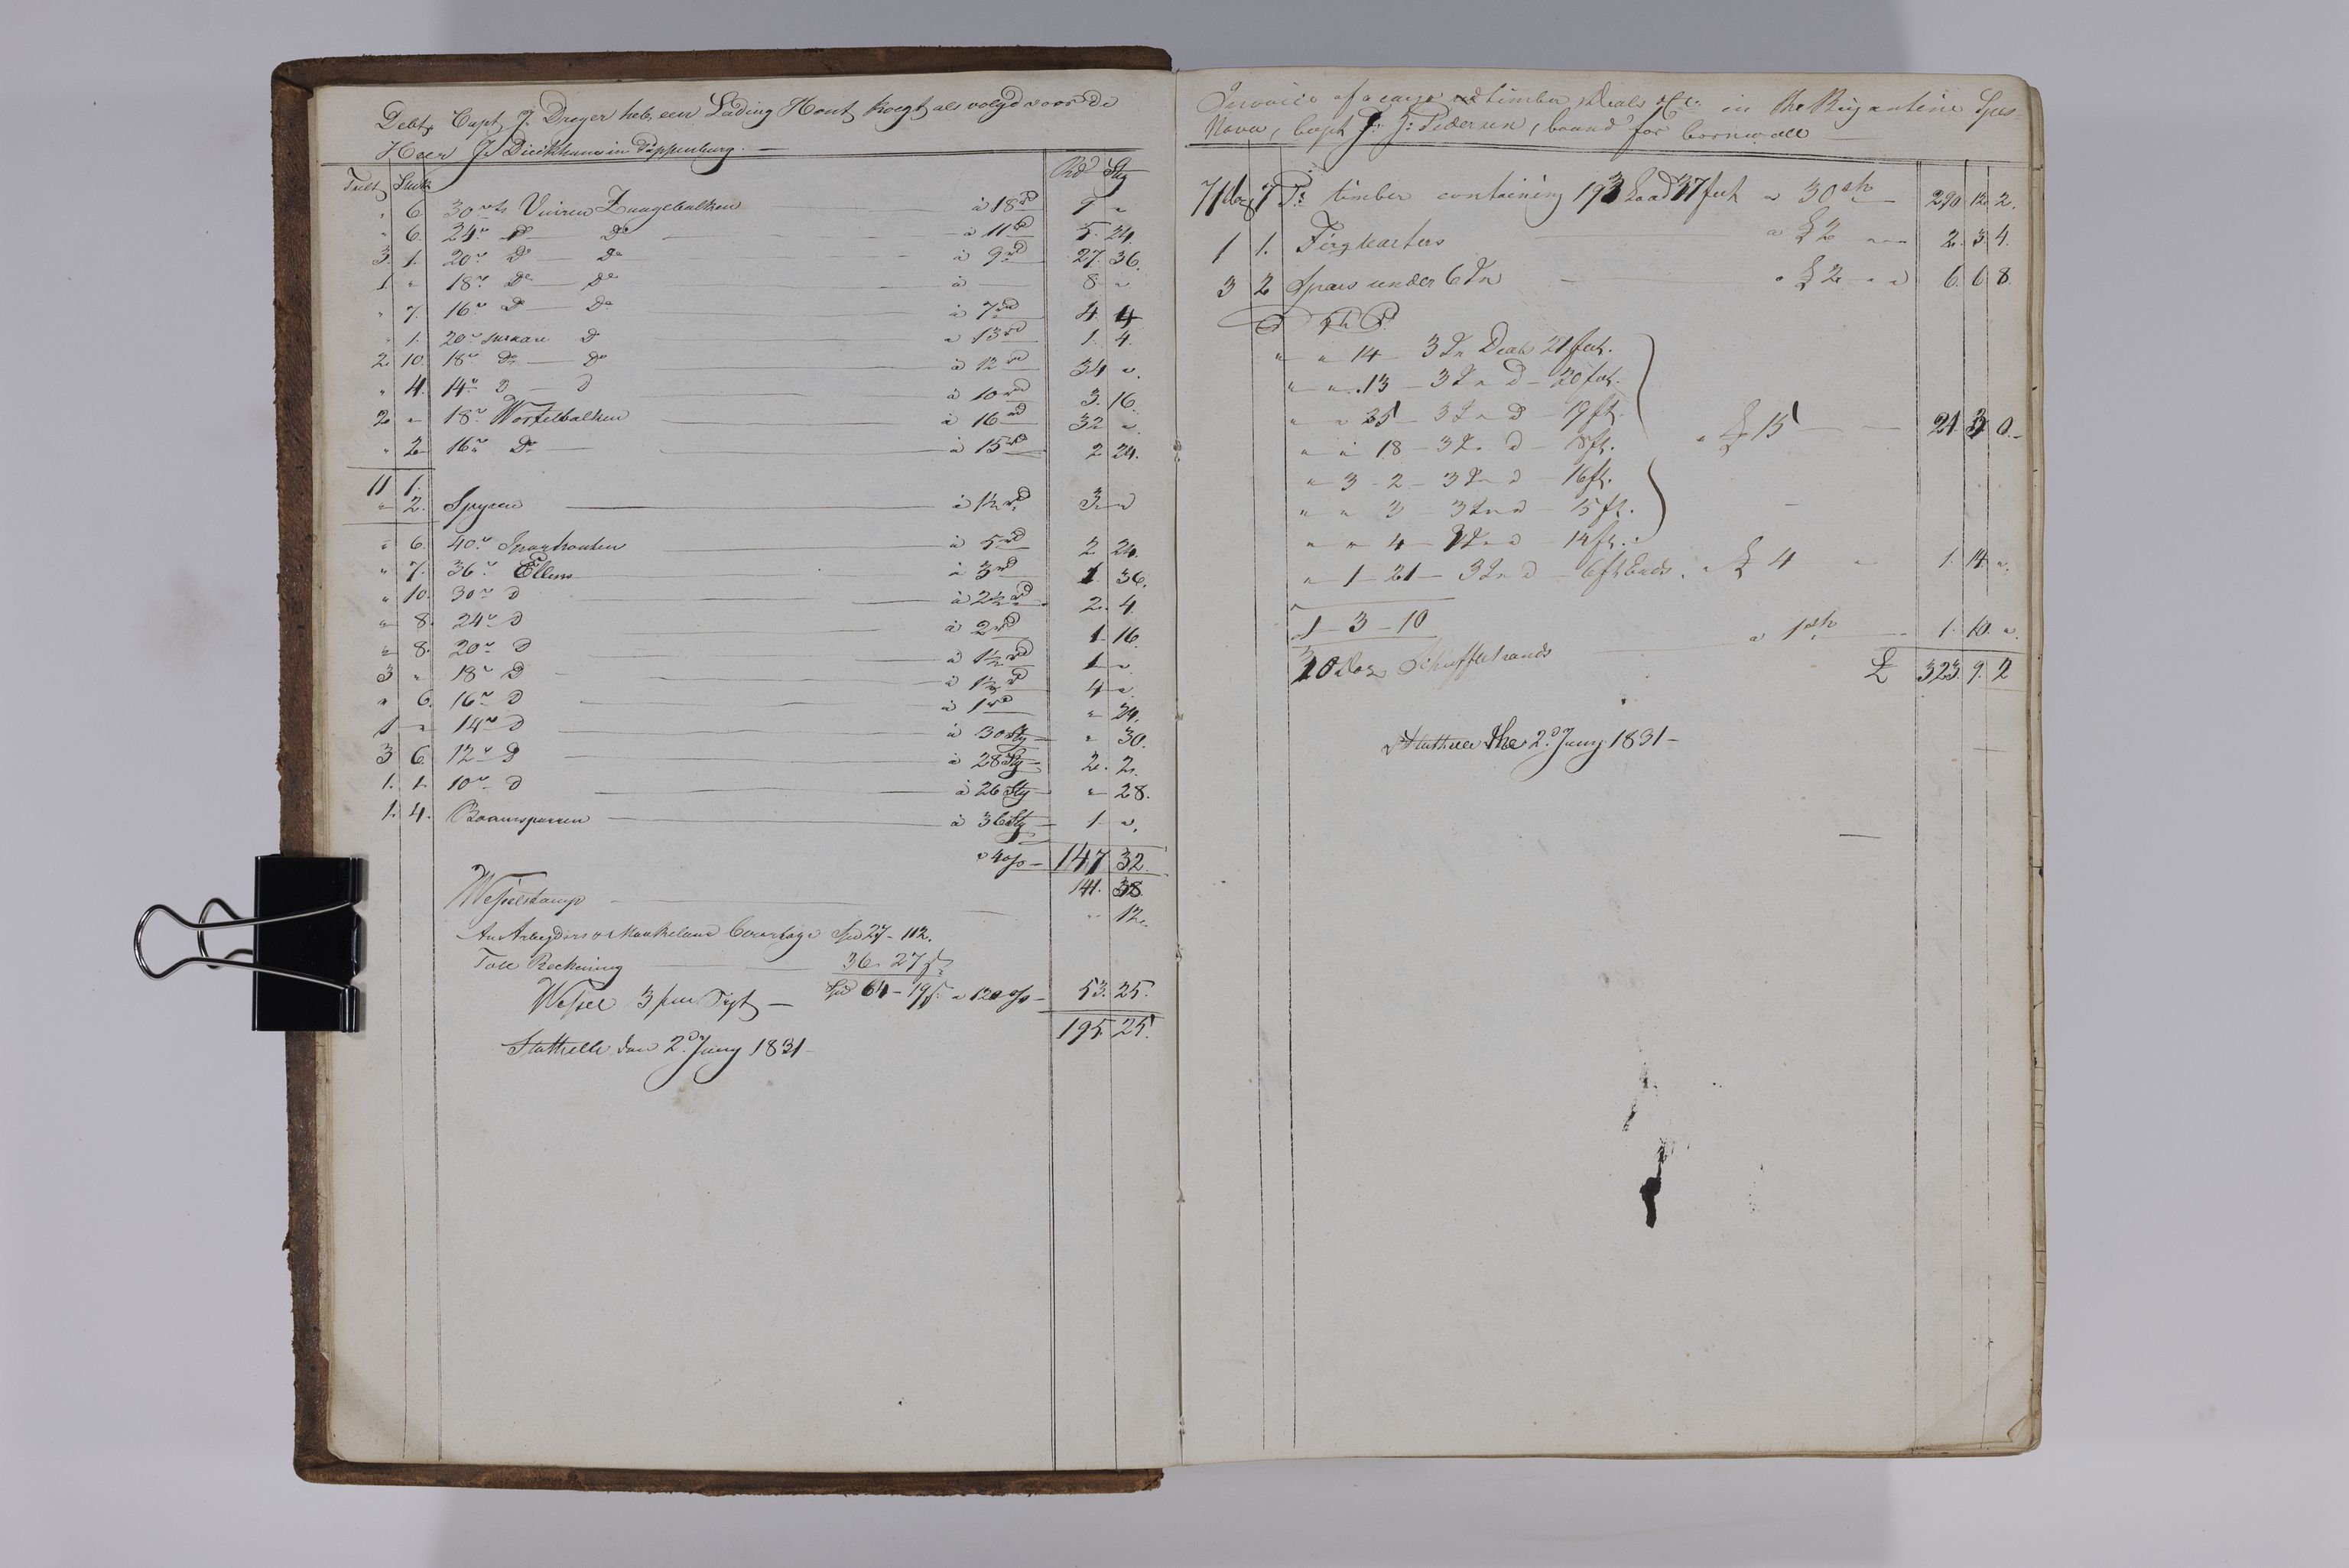 Debt, Capt J. Dreyer heb, een Lading Hout kregt als volgd voor de
Heer J. Dieckhaus in Pappenburg. —
Tult Stuck Rd Stg
" 6. 30 Vuiren Zaagebalken — à 18 rd 9 "
" 6. 24 " Do — Do — à 11 rd 5. 24.
3. 1. 20 " Do — Do — à 9 rd 27. 36.
1 " 18 " Do — Do à — 8. "
" 7. 16 " D — Do à 7 rd 4. 4
" 1. 20 " D à 13 rd 1. 4.
2. 10. 18 " Do — Do à 12 rd 34 "
" 4. 14 " D — D à 10 rd 3. 16.
2 " 18 " Wortelbalken à 16 rd 32 "
" 2 16 " Do — à 15 rd 2 24.
11 1.
" 2. Spyren — à 1½ rd 3 "
" 6. 40 " Sparhouten — à 5 rd 2 24.
" 7. 36 " Ellens — à 3 rd 1. 36.
" 10. 30 " D — à 2½ rd 2. 4
" 8. 24 " D — à 2 rd 1. 16.
" 8. 20 " D — à 1½ rd 1 "
3 " 18 " D — à 1⅓ rd 4 "
" 6. 16 " D — à 1 rd " 24.
1 " 14 " D — à 30 Stg — " 30.
3 6. 12 " D — à 28 Stg — 2. 2.
1. 1. 10 " D — à 26 Stg — " 28.
1. 4. Boomsparren — à 36 Stg — 1 "
à 4 % — 147 32.
141. 38
Wesselstamp — " 12.
An Arbeyders Courtage Spd 27 - 112.
Toll Reckening — 36. 27
Wessel 3 Sigt — Spd 64 - 19 à 120 % — 53. 25.
195. 25.
Stathelle den 2. Juny 1831 —
Invoice of a cargo timber, Deals &c. in the Brigantine Spes
Nova, Capt J. J. Pedersen, bound for Cornwall
71 doz 7 Ps timber containing 193 Load 37 feet a 30 sh — 290 12 2.
1 1. a £ 2 " " 2. 3. 4.
3 2 Spars under 6 In — a £ 2 " " 6. 6 8.
" " 14 — 3 In Deals 21 feet.
" " 13 — 3 In D — 20 feet.
" " 35 — 3 In D — 19 ft.
" " 18 — 3 In D — 18 ft. a £ 15 — 21 3 0.
" 3 - 2 — 3 In D — 16 ft.
" " 3 — 3 In D — 15 ft.
" " 4 — 3 In D — 14 ft.
" 1 - 21 — 3 In D — 6 ft Ends. a £ 4 " 1. 14. "
1 - 3 - 10
30 Doz a 1 sh — 1. 10. "
£ 323. 9. 2
Stathelle the 2. Juny 1831 —